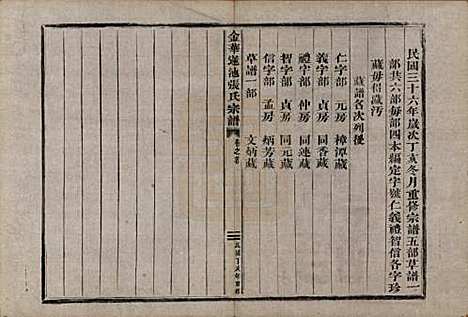 民國三十六年歲次丁亥冬月重修宗譜五部草譜一
部共六部每部四本編定字號仁義禮智信各字珍
藏毋侶濊汚
藏譜名次列後
仁字部 元房 樟潭藏
義字部 貞房 同香藏
禮字部 仲房 同蓮藏
智字部 貞房 同元藏
信字部 孟房 炳芳藏
草譜一部 文炳藏
金華蓮池張氏宗譜 卷之首